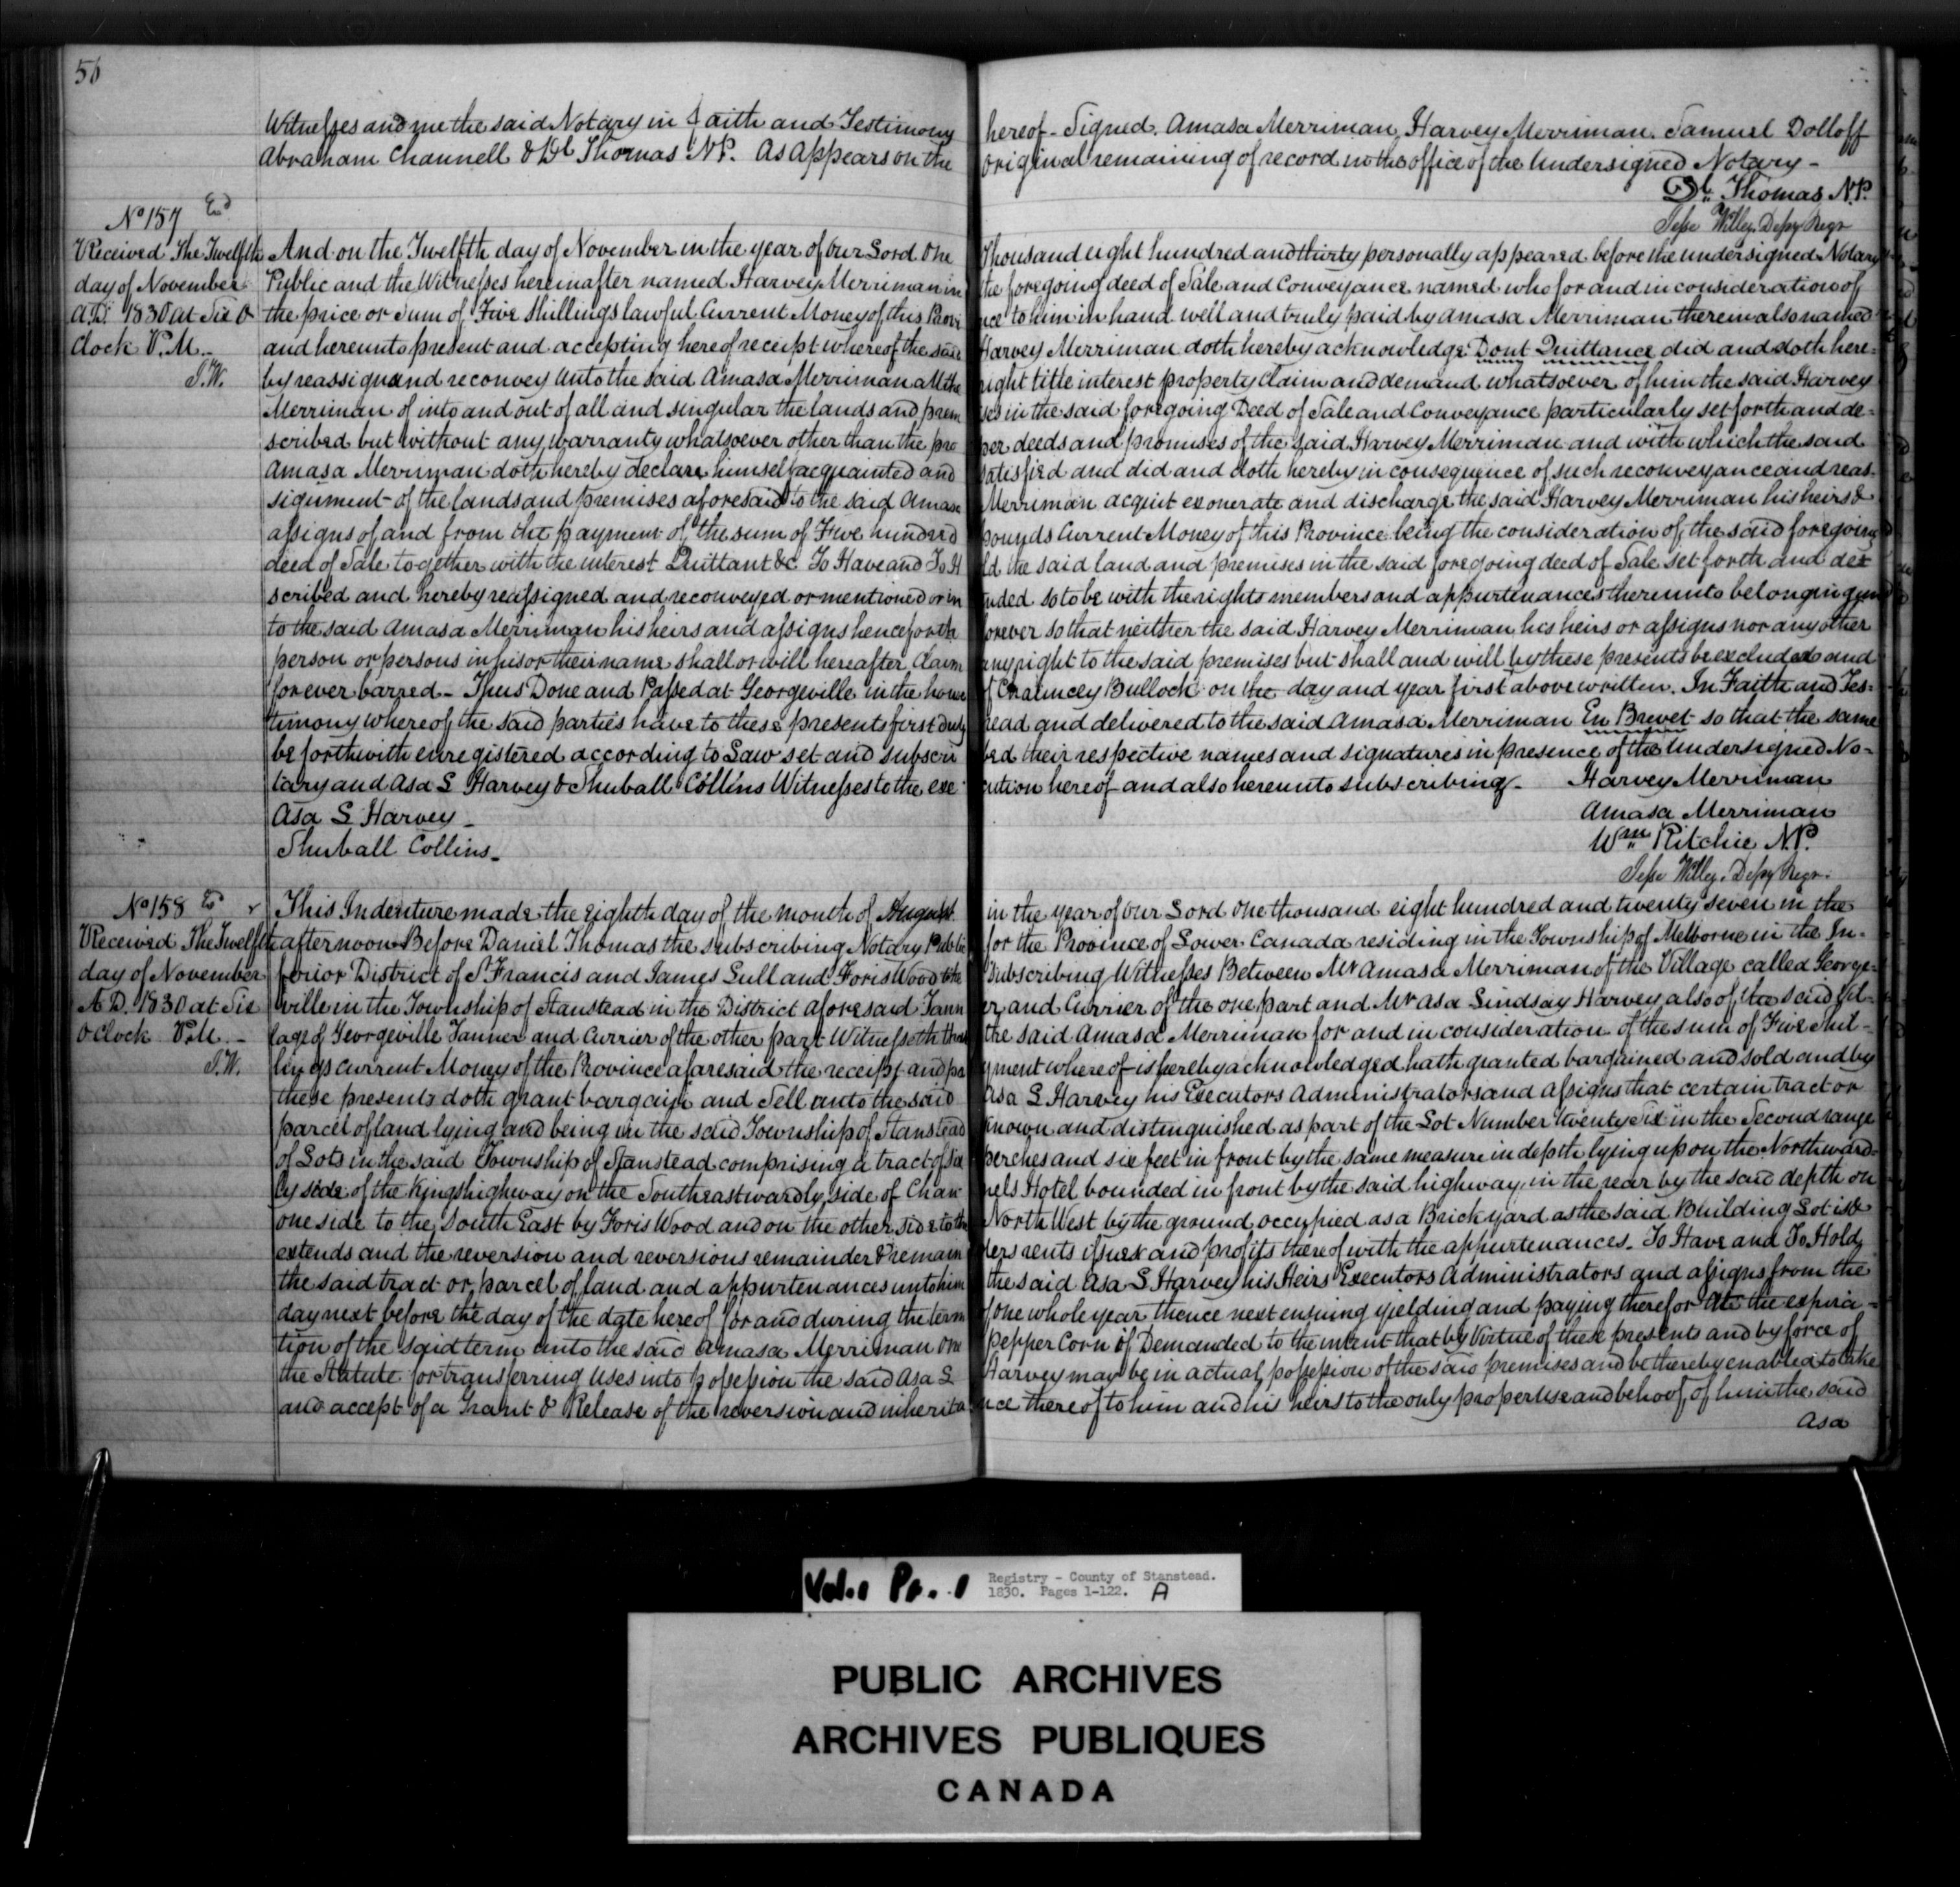 56
Witnesses and me the said Notary in Faith and Testimony hereof - Signed. Amasa Merriman, Harvey Merriman. Samuel Dolloff
Abraham Channell & Dl Thomas N.P. As Appears on the original remaining of record in the office of the Undersigned Notary -
Dl. Thomas N.P.
Jesse Willey. Depy Regr
No 157 Ed
Received The Twelfth
day of November
A.D. 1830 at Six O
Clock P.M. -
J.W.
And on the Twelfth day of November in the year of Our Lord One Thousand eight hundred and thirty personally appeared before the undersigned Notary
Public and the Witnesses hereinafter named Harvey Merriman in the foregoing deed of Sale and Conveyance named who for and in consideration of
the price or sum of Five Shillings lawful Current Money of this Province to him in hand well and truly paid by Amasa Merriman therein also named
and hereunto present and accepting hereof receipt whereof the said Harvey Merriman doth hereby acknowledge Dont Quittance did and doth here=
by reassign and reconvey Unto the said Amasa Merriman all the right title interest property Claim and demand whatsoever of him the said Harvey
Merriman of into and out of all and singular the lands and premises in the said foregoing Deed of Sale and Conveyance particularly set forth and de=
scribed but without any warranty whatsoever other than the proper deeds and promises of the said Harvey Merriman and with which the said
Amasa Merriman doth hereby declare himself acquainted and satisfied and did and doth hereby in consequence of such reconveyance and reas-
signment of the lands and premises aforesaid to the said Amasa Merriman acquit exonerate and discharge the said Harvey Merriman his heirs &
assigns of and from the payment of the sum of Five hundred pounds Current Money of this Province being the consideration of the said foregoing
deed of Sale together with the interest Quittant &c. To Have and To Hold the said land and premises in the said foregoing deed of Sale set forth and des
scribed and hereby reassigned and reconveyed or mentioned or intended so to be with the rights members and appurtenances thereunto belonging un
to the said Amasa Merriman his heirs and assigns henceforth forever so that neither the said Harvey Merriman his heirs or assigns nor any other
person or persons in his or their name shall or will hereafter Claim any right to the said premises but shall and will by these presents be excluded and
forever barred - Thus Done and Passed at Georgeville in the house of Chauncey Bullock on the day and year first above written. In Faith and Tes=
timony whereof the said parties have to these presents first duly read and delivered to the said Amasa Merriman En Brevet so that the same
be forthwith enregistered according to Law set and subscribed their respective names and signatures in presence of the Undersigned No-
tary and Asa S Harvey & Shuball Collins Witnesses to the execution hereof and also hereunto subscribing - Harvey Merriman
Asa S Harvey - Amasa Merriman
Shuball Collins - Wm Ritchie N.P.
Jesse Willey. Depy Regr.
No 158 Ed
Received The Twelfth
day of November
A.D. 1830 at Six
O Clock P.M. -
J.W.
This Indenture made the eighth day of the month of August in the year of our Lord One thousand eight hundred and twenty seven in the
afternoon Before Daniel Thomas the subscribing Notary Public for the Province of Lower Canada residing in the Township of Melborne in the In-
ferior District of St Francis and James Lull and Foris Wood the Subscribing Witnesses Between Mr Amasa Merriman of the Village called George=
ville in the Township of Stanstead in the District aforesaid Tanner and Currier of the one part and Mr Asa Lindsay Harvey also of the said Vil-
lage of Georgeville Tanner and Currier of the other part Witnesseth that the said Amasa Merriman for and in consideration of the sum of Five Shil-
lings current Money of the Province aforesaid the receipt and payment whereof is hereby acknowledged hath granted bargained and sold and by
these presents doth grant bargain and Sell unto the said Asa S Harvey his Executors Administrators and Assigns that certain tract or
parcel of land lying and being in the said Township of Stanstead known and distinguished as part of the Lot Number Twenty Six in the Second range
of Lots in the said Township of Stanstead comprising a tract of six perches and six feet in front by the same measure in depth lying up on the Northward=
ly side of the Kings highway on the Southeastwardly side of Channels Hotel bounded in front by the said highway, in the rear by the said depth on
one side to the South East by Foris Wood and on the other side to the North West by the ground occupied as a Brick yard as the said Building Lot is &
extends and the reversion and reversions remainder & remainders rents issues and profits thereof with the appurtenances. To Have and To Hold
the said tract or parcel of land and appurtenances unto him the said Asa S Harvey his Heirs Executors Administrators and assigns from the
day next before the day of the date hereof for and during the term of one whole year thence next ensuing yielding and paying therefor At the expira-
tion of the said term unto the said Amasa Merriman One pepper Corn if Demanded to the intent that by Virtue of these presents and by force of
the Statute for transferring Uses into possession the said Asa S Harvey may be in actual possession of the said premises and be thereby enabled to take
and accept of a Grant & Release of the reversion and inheritance thereof to him and his heirs to the only proper use and behoof of him the said
Asa
Vol. 1 Pt. 1
Registry - County of Stanstead.
1830. Pages 1-122. A
PUBLIC ARCHIVES
ARCHIVES PUBLIQUES
CANADA